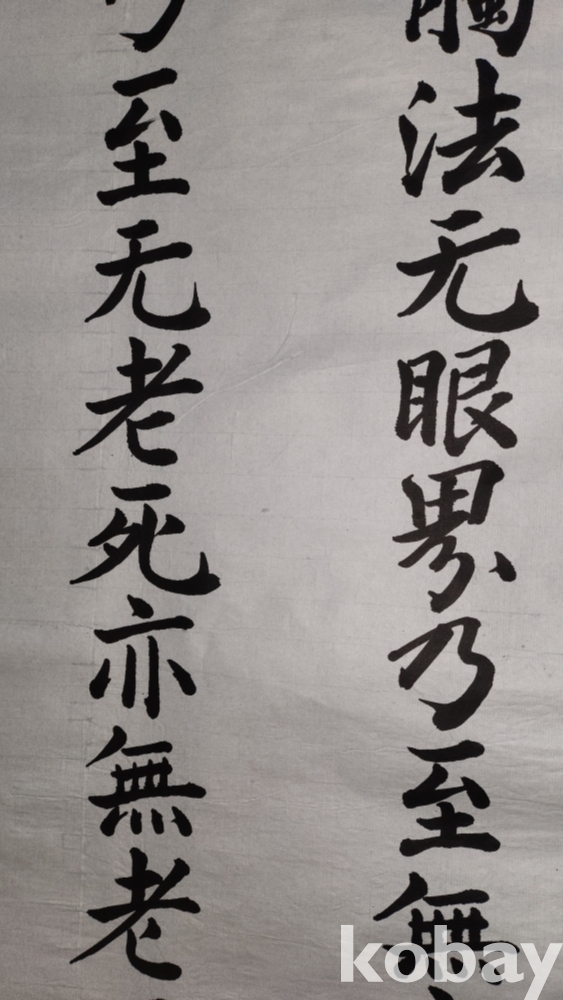 觸法无眼界乃至無
乃至无老死亦無老
kobay